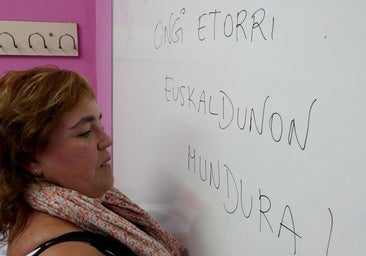 ONGI ETORRI
EUSKALDUNON
MUNDURA!